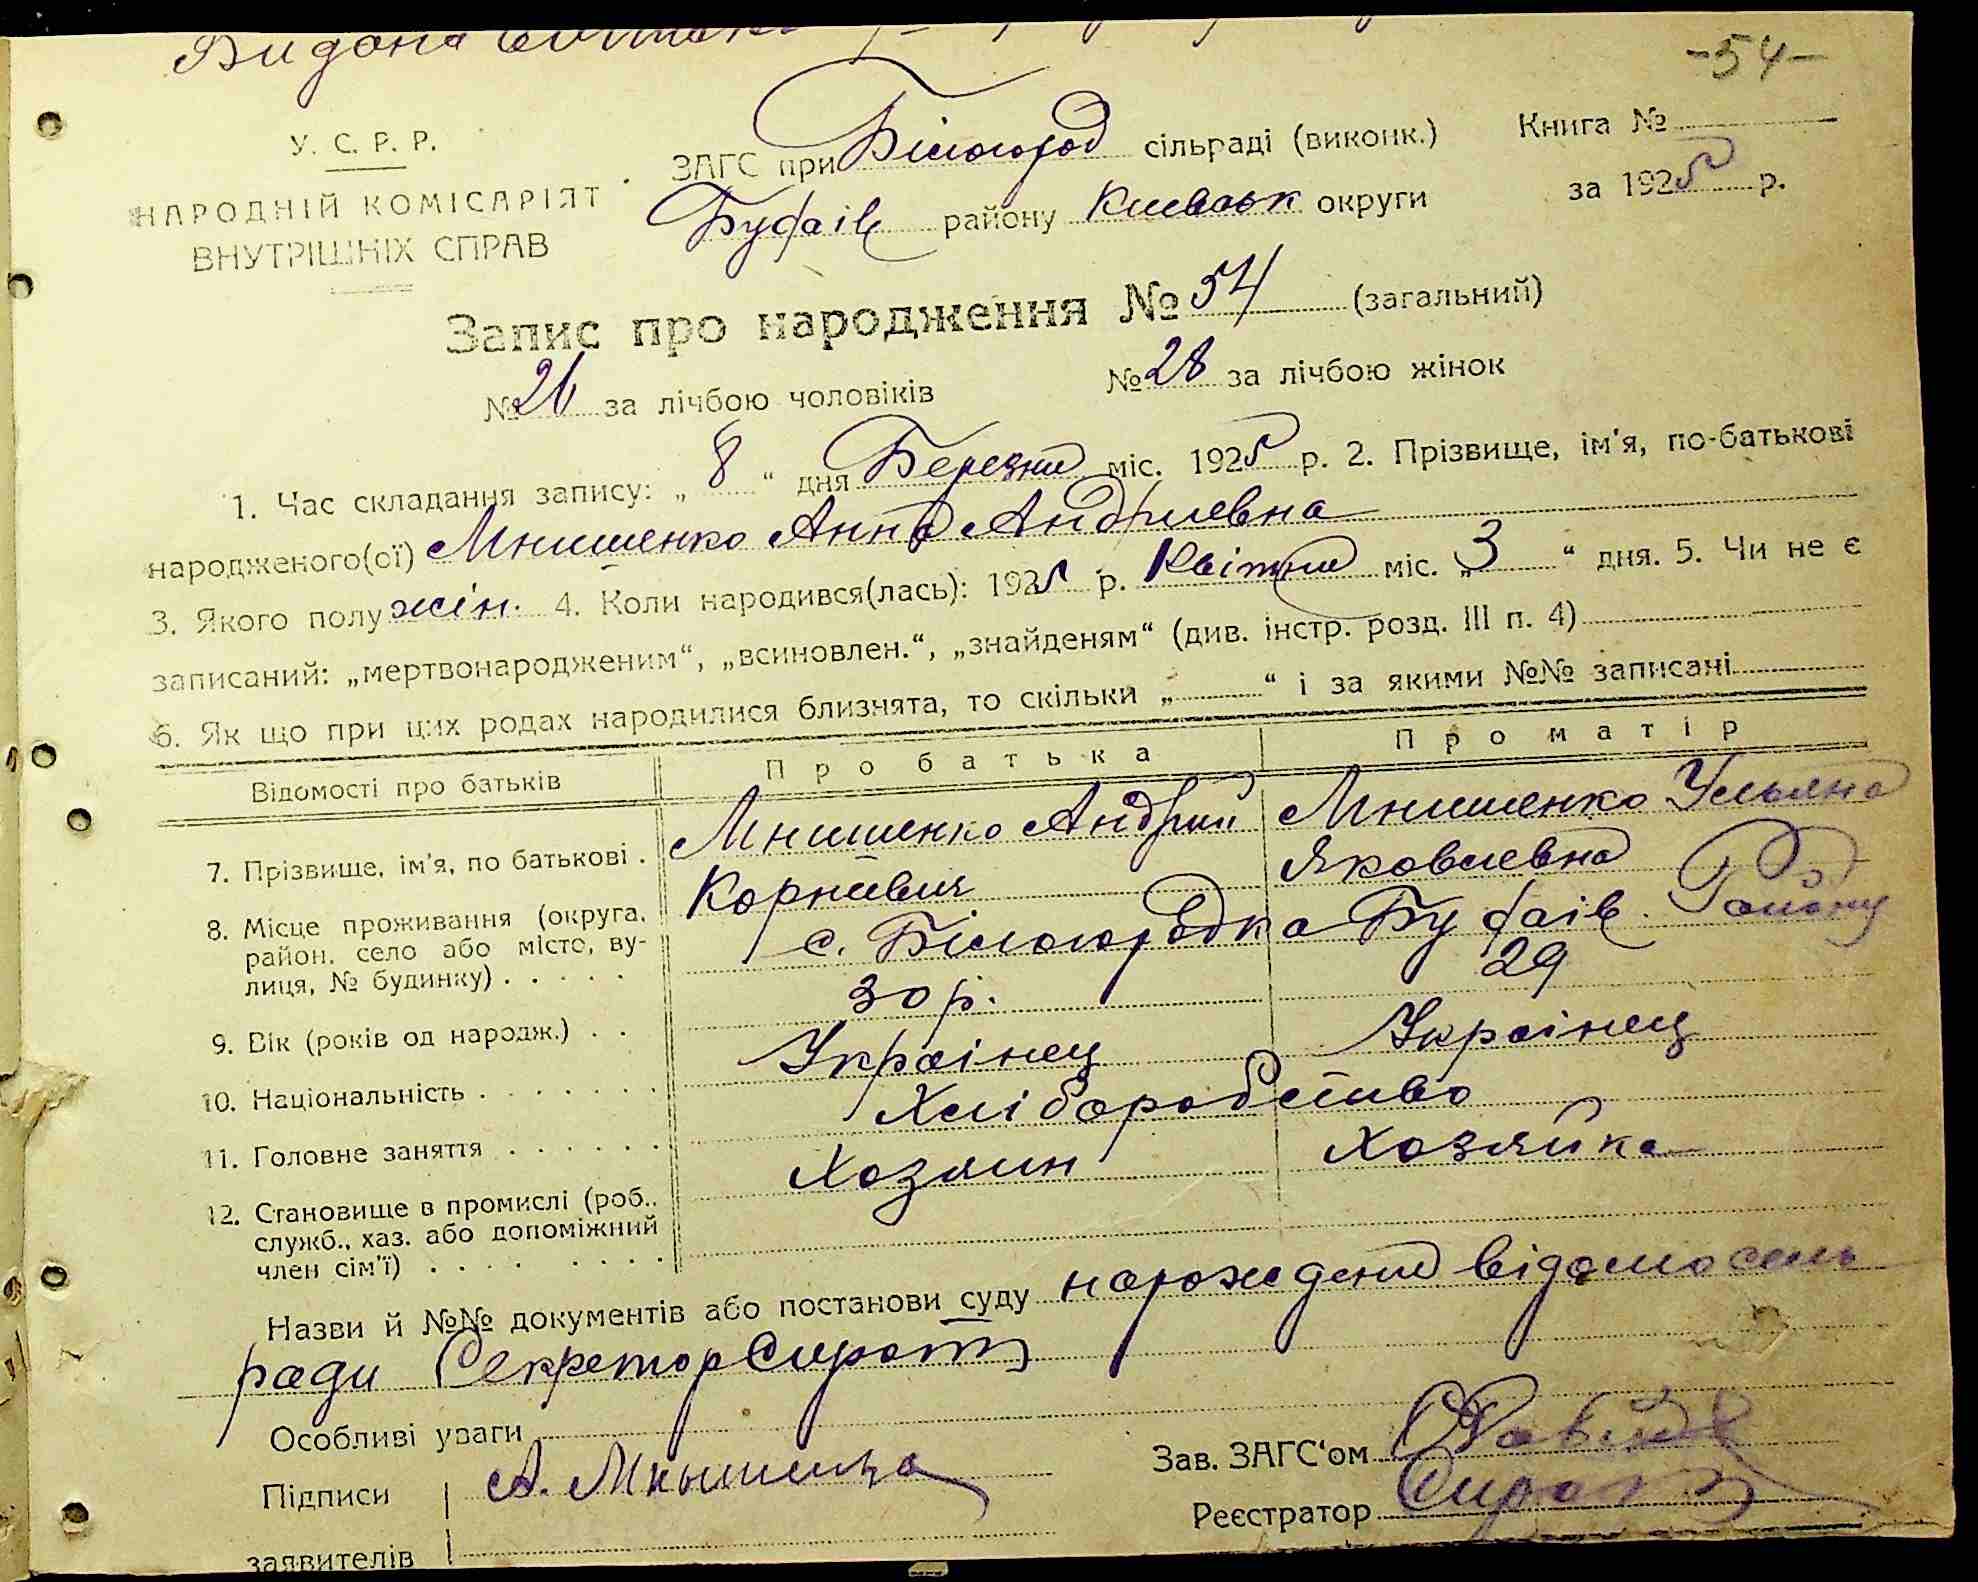 Видана
-54-
У. С. Р. Р.
НАРОДНІЙ КОМІСАРІЯТ
ВНУТРІШНІХ СПРАВ
ЗАГС при Білогород сільраді (виконк.)
Книга №
Будаїв району Київськ округи
за 1925 р.
Запис про народження № 54 (загальний)
№ 26 за лічбою чоловіків
№ 28 за лічбою жінок
1. Час складання запису: „ 8 “ дня Березня міс. 1925 р. 2. Прізвище, ім'я, по-батькові
народженого(ої) Мнишенко Анна Андриевна
3. Якого полу жін. 4. Коли народився(лась): 1925 р. Квітня міс. „ 3 “ дня. 5. Чи не є
записаний: „мертвонародженим“, „всиновлен.“, „знайденям“ (див. інстр. розд. III п. 4)
6. Як що при цих родах народилися близнята, то скільки „ “ і за якими №№ записані
Відомості про батьків
Про батька
Про матір
7. Прізвище, ім'я, по батькові .
Мнишенко Андрий
Корнієвич
Мнишенко Ульяна
Яковлевна
8. Місце проживання (округа,
район, село або місто, ву-
лиця, № будинку) . . . . .
с. Білогородка Будаїв. Району
9. Вік (років од народж.) . .
30 р.
29
10. Національність . . . . . . .
Українец
Українец
11. Головне заняття . . . . . .
Хліборобство
12. Становище в промислі (роб.,
служб., хаз. або допоміжний
член сім'ї) . . . . . . . .
Хозяин
Хозяйка
Назви й №№ документів або постанови суду нарождения відомо сель
ради Секретор Сирота
Особливі уваги
Підписи
заявителів
А. Мнышенко
Зав. ЗАГС‘ом
Реєстратор Сирота